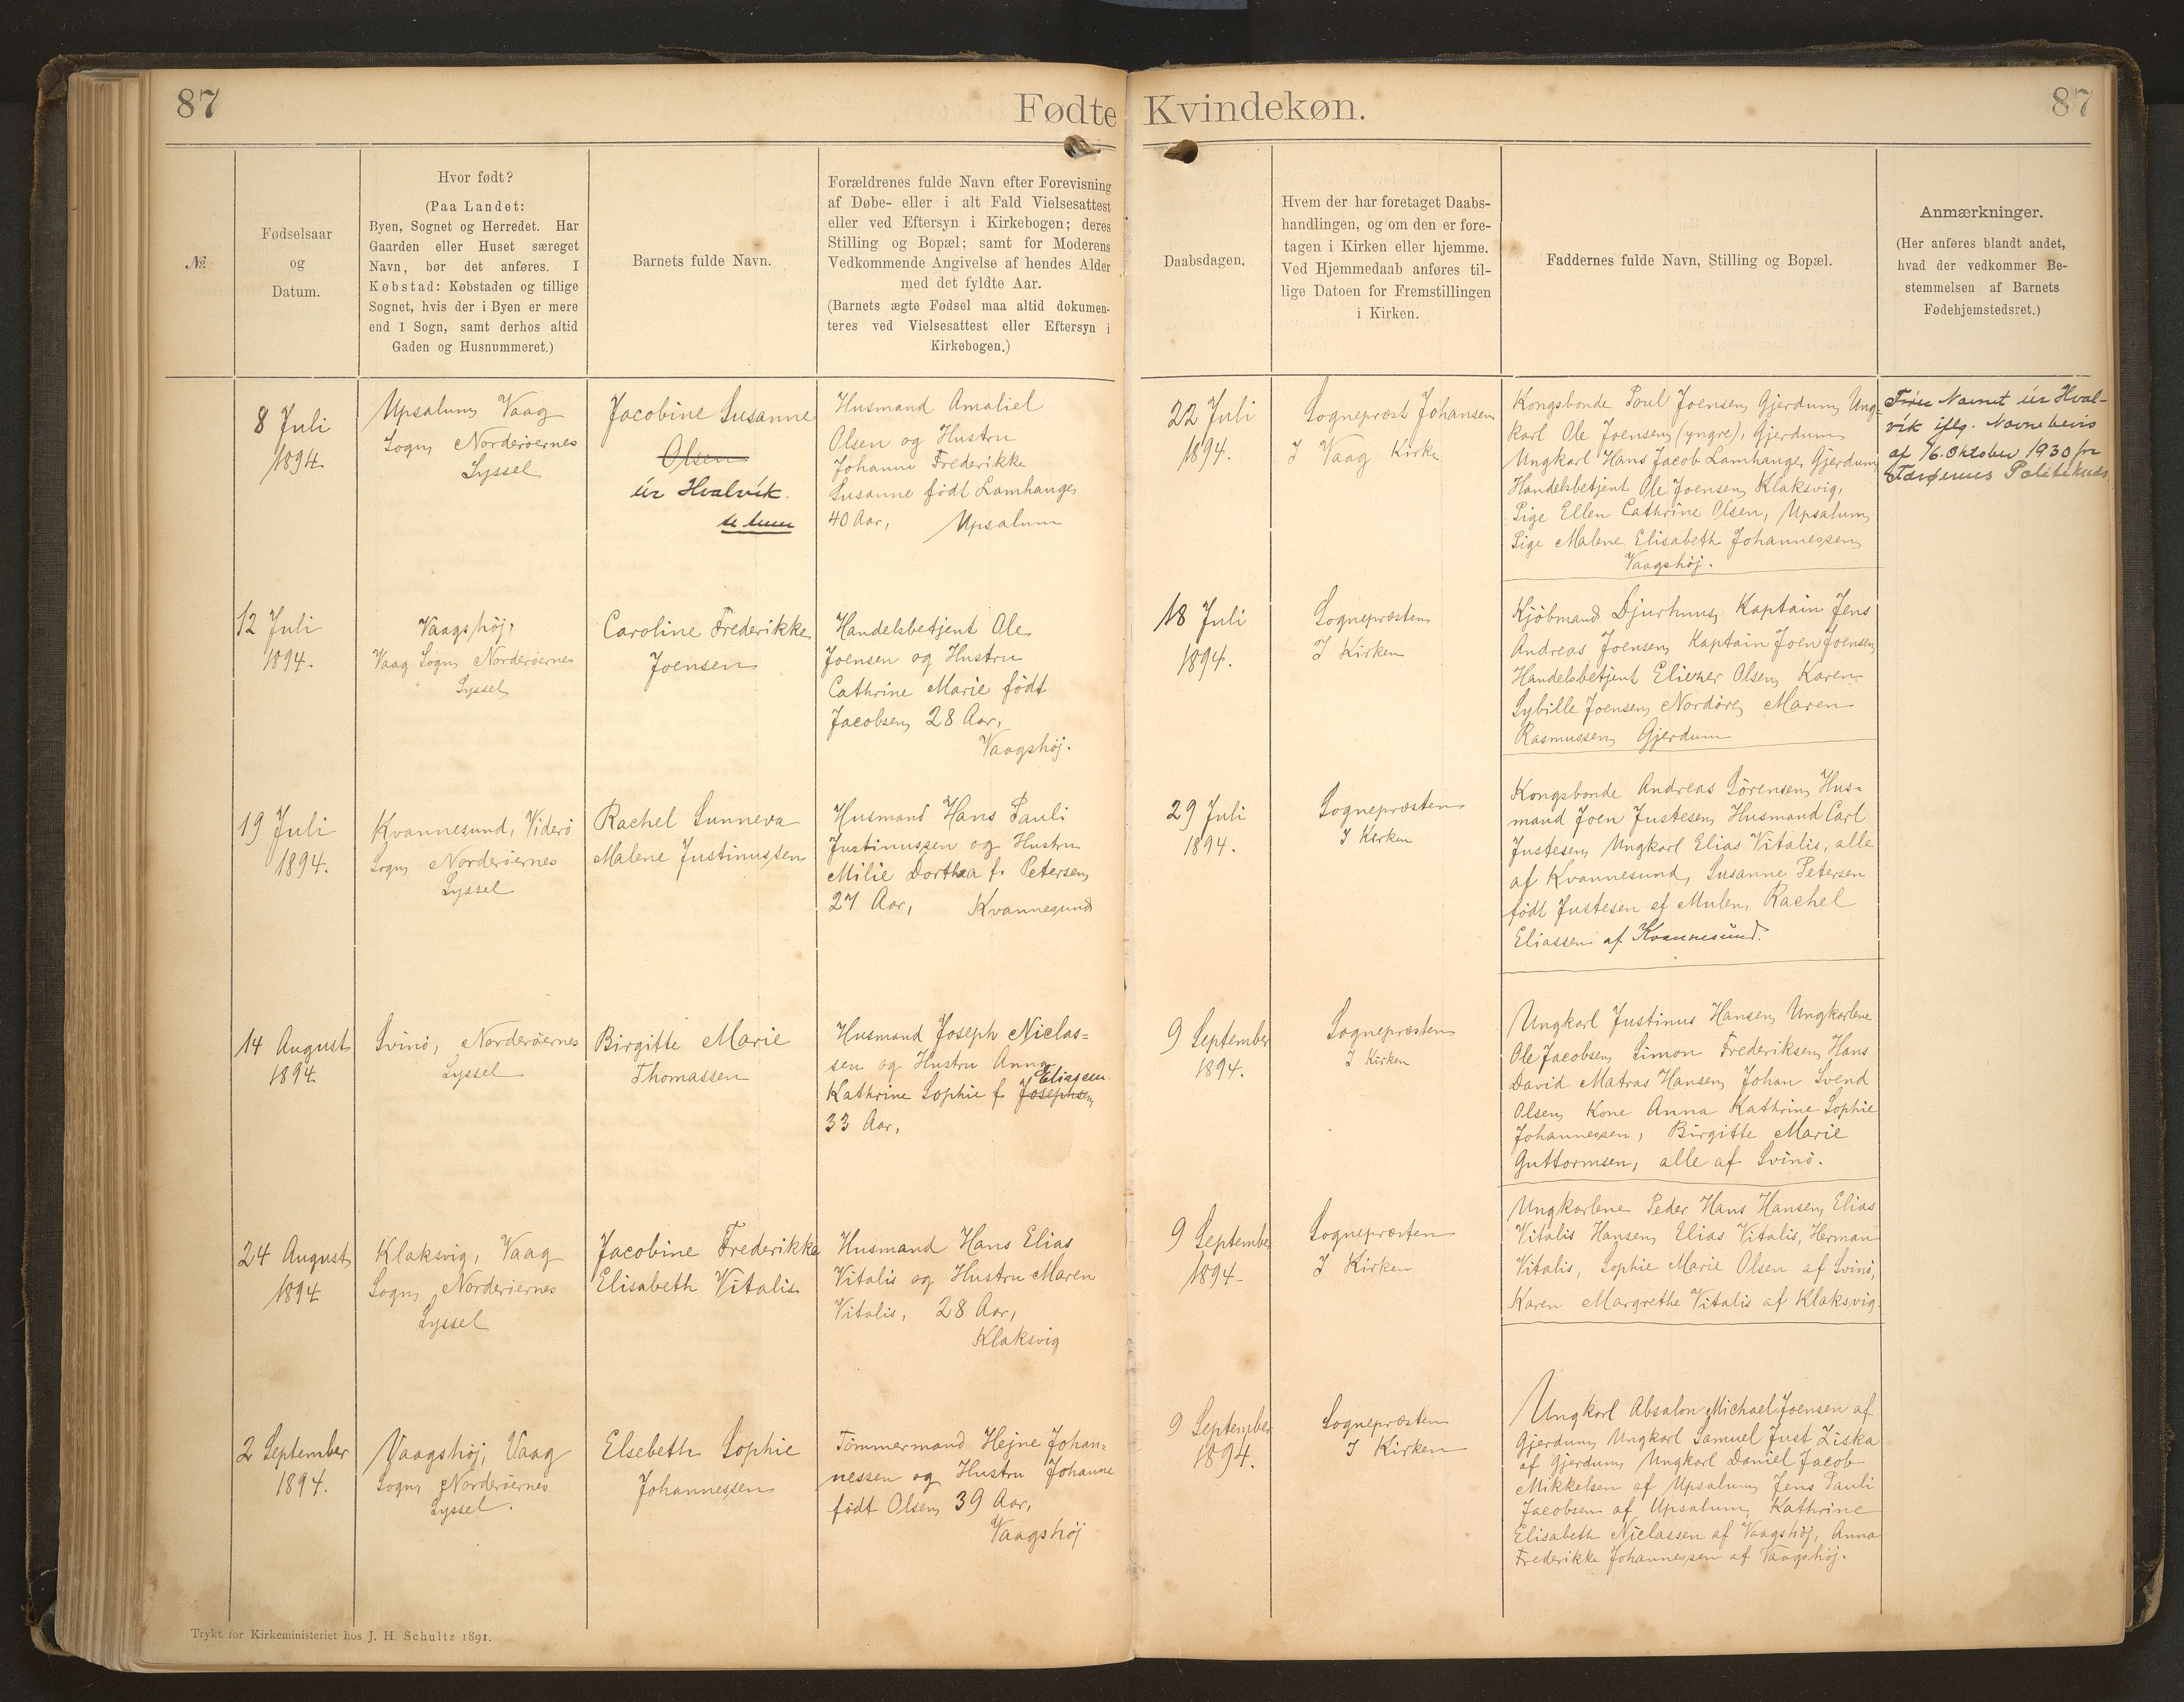 87
Fødte Kvindekøn.
87
№
Fødselsaar
og
Datum.
Hvor født?
(Paa Landet:
Byen, Sognet og Herredet. Har
Gaarden eller Huset særeget
Navn, bør det anføres. I
Købstad: Købstaden og tillige
Sognet, hvis der i Byen er mere
end 1 Sogn, samt derhos altid
Gaden og Husnummeret.)
Barnets fulde Navn.
Forældrenes fulde Navn efter Forevisning
af Døbe- eller i alt Fald Vielsesattest
eller ved Eftersyn i Kirkebogen; deres
Stilling og Bopæl; samt for Moderens
Vedkommende Angivelse af hendes Alder
med det fyldte Aar.
(Barnets ægte Fødsel maa altid dokumen-
teres ved Vielsesattest eller Eftersyn i
Kirkebogen.)
Daabsdagen.
Hvem der har foretaget Daabs-
handlingen, og om den er fore-
tagen i Kirken eller hjemme.
Ved Hjemmedaab anføres til-
lige Datoen for Fremstillingen
i Kirken.
Faddernes fulde Navn, Stilling og Bopæl.
Anmærkninger.
(Her anføres blandt andet,
hvad der vedkommer Be-
stemmelsen af Barnets
Fødehjemstedsret.)
8 Juli
1894.
Upsalum, Vaag
Sogn, Norderöernes
Syssel
Jacobine Susanne
Olsen
úr Hvalvík.
Husmand Amaliel
Olsen og Hustru
Johanne Frederikke
Susanne født Lamhauge,
40 Aar, Upsalum
22 Juli
1894.
Sognepræst Johansen
I Vaag Kirke
Kongsbonde Poul Joensen, Gjerdum, Ung=
karl Ole Joensen (yngre), Gjerdum
Ungkarl Hans Jacob Lamhauge, Gjerdum,
Handelsbetjent Ole Joensen, Klaksvig,
Pige Ellen Cathrine Olsen, Upsalum,
Pige Malene Elisabeth Johannessen,
Vaagshöj.
Navnet úr Hval-
vík iflg. Navnebevis
af 16. Oktober 1930 fra
Færøernes
12 Juli
1894.
Vaagshöj,
Vaag Sogn, Norderöernes
Syssel
Caroline Frederikke
Joensen
Handelsbetjent Ole
Joensen og Hustru
Cathrine Marie født
Jacobsen, 28 Aar,
Vaagshöj.
18 Juli
1894.
Sognepræsten
I Kirken
Kjöbmand Djurhuus, Kaptain Jens
Andreas Joensen, Kaptain Joen Joensen,
Handelsbetjent Eliezer Olsen, Karen
Sybille Joensen, Nordöre, Maren
Rasmussen, Gjerdum
19 Juli
1894.
Kvannesund, Viderö
Sogn, Norderöernes
Syssel
Rachel Sunneva
Malene Justinussen
Husmand Hans Pauli
Justinussen og Hustru
Milie Dorthea f. Petersen,
27 Aar, Kvannesund
29 Juli
1894.
Sognepræsten
I Kirken
Kongsbonde Andreas Sörensen, Hus=
mand Joen Justesen, Husmand Carl
Justesen, Ungkarl Elias Vitalis, alle
af Kvannesund, Susanne Petersen
født Justesen af Mulen, Rachel
Eliassen af Kvannesund.
14 August
1894
Svinö, Norderöernes
Syssel
Birgitte Marie
Thomassen
Husmand Joseph Niclas=
sen og Hustru Anna
Eliassen
Kathrine Sophie f. Josephsen,
33 Aar,
9 September
1894.
Sognepræsten
I Kirken
Ungkarl Justinus Hansen, Ungkarlene
Ole Jacobsen, Simon Frederiksen, Hans
David Matras Hansen, Johan Svend
Olsen, Kone Anna Kathrine Sophie
Johannessen, Birgitte Marie
Guttormsen, alle af Svinö.
24 August
1894
Klaksvig, Vaag
Sogn, Norderöernes
Syssel
Jacobine Frederikke
Elisabeth Vitalis
Husmand Hans Elias
Vitalis og Hustru Maren
Vitalis, 28 Aar,
Klaksvig
9 September
1894-
Sognepræsten
I Kirken
Ungkarlene Peder Hans Hansen, Elias
Vitalis Hansen, Elias Vitalis, Herman
Vitalis, Sophie Marie Olsen af Svinö,
Karen Margrethe Vitalis af Klaksvig.
2 September
1894.
Vaagshöj, Vaag
Sogn, Norderöernes
Syssel.
Elsebeth Sophie
Johannessen
Tömmermand Hejne Johan=
nessen og Hustru Johanne
født Olsen, 39 Aar,
Vaagshöj
9 September
1894.
Sognepræsten
I Kirken
Ungkarl Absalon Michael Joensen af
Gjerdum, Ungkarl Samuel Just Ziska
af Gjerdum, Ungkarl Daniel Jacob
Mikkelsen af Upsalum, Jens Pauli
Jacobsen af Upsalum, Kathrine
Elisabeth Niclassen af Vaagshöj, Anna
Frederikke Johannessen af Vaagshöj.
Trykt for Kirkeministeriet hos J. H. Schultz 1891.